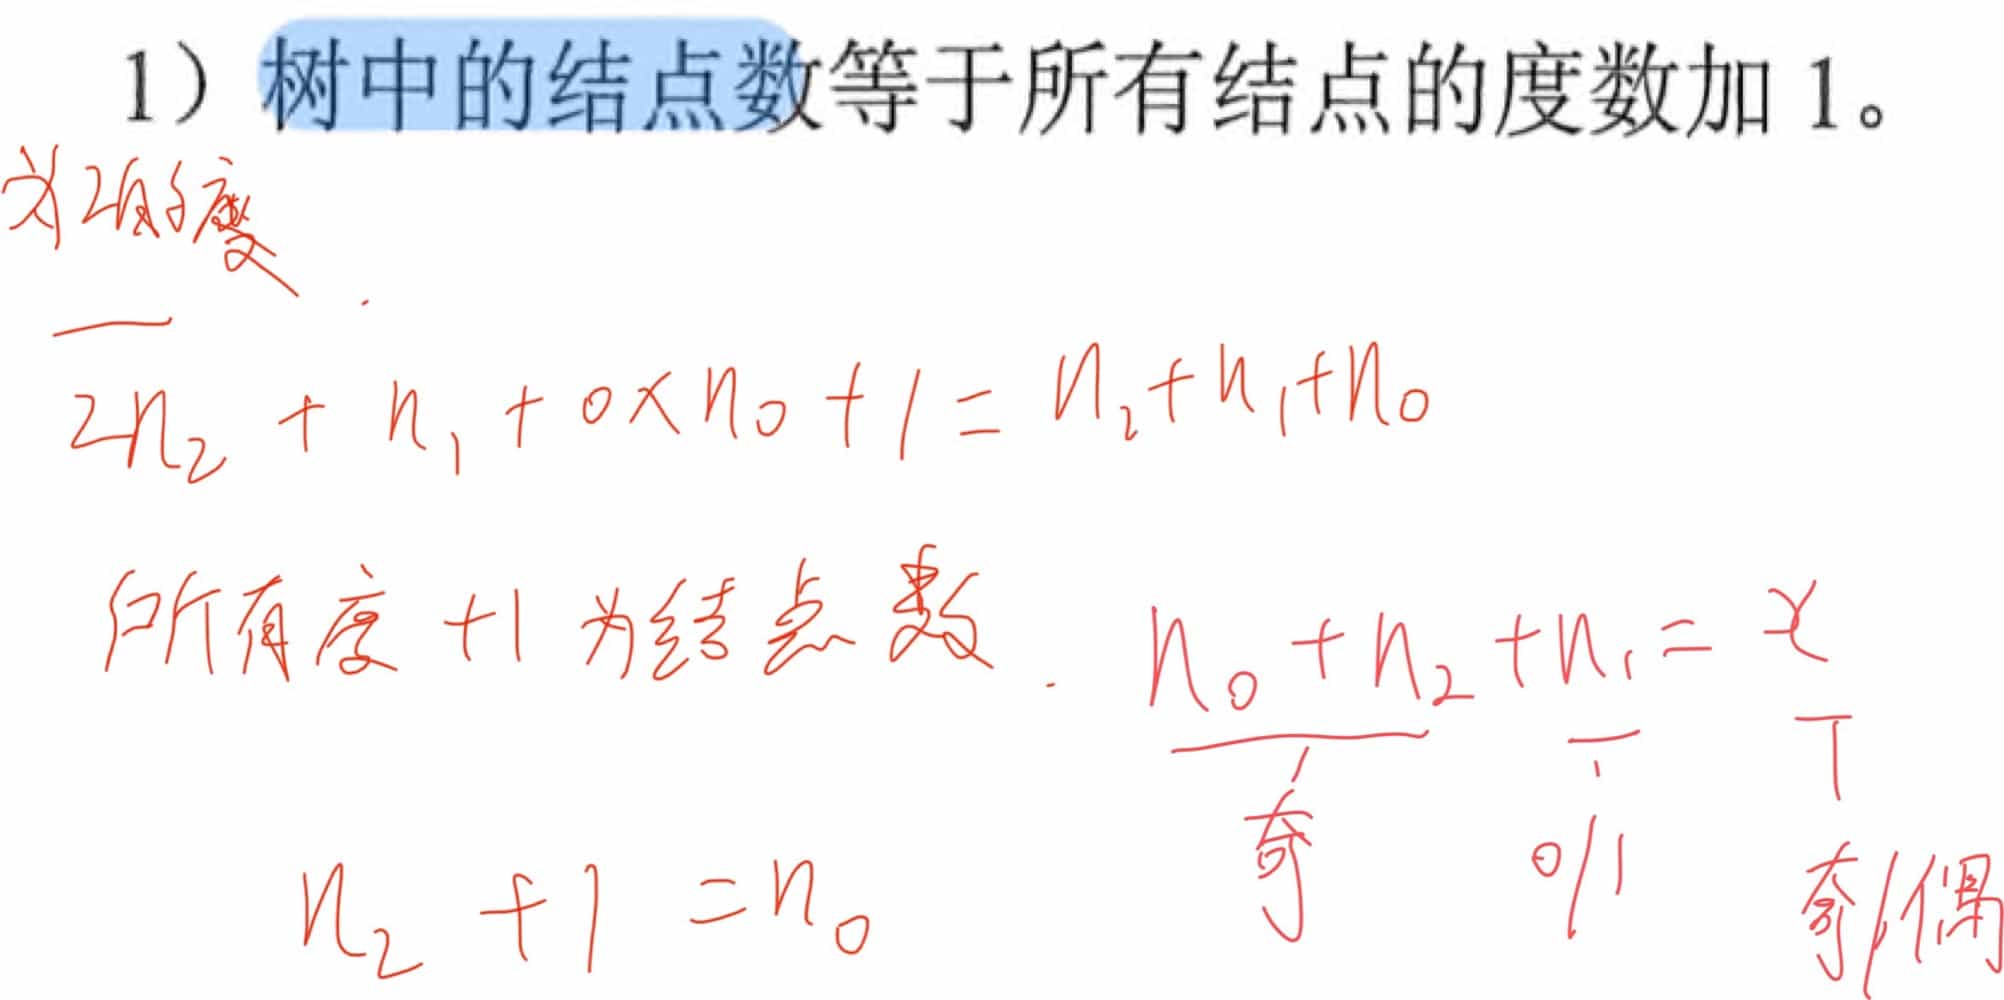 1）树中的结点数等于所有结点的度数加 1。
2n₂ + n₁ + 0×n₀ + 1 = n₂+n₁+n₀
所有度 +1 为结点数.
n₀+n₂+n₁=x
奇 0/1 奇/偶
n₂ +1 =n₀